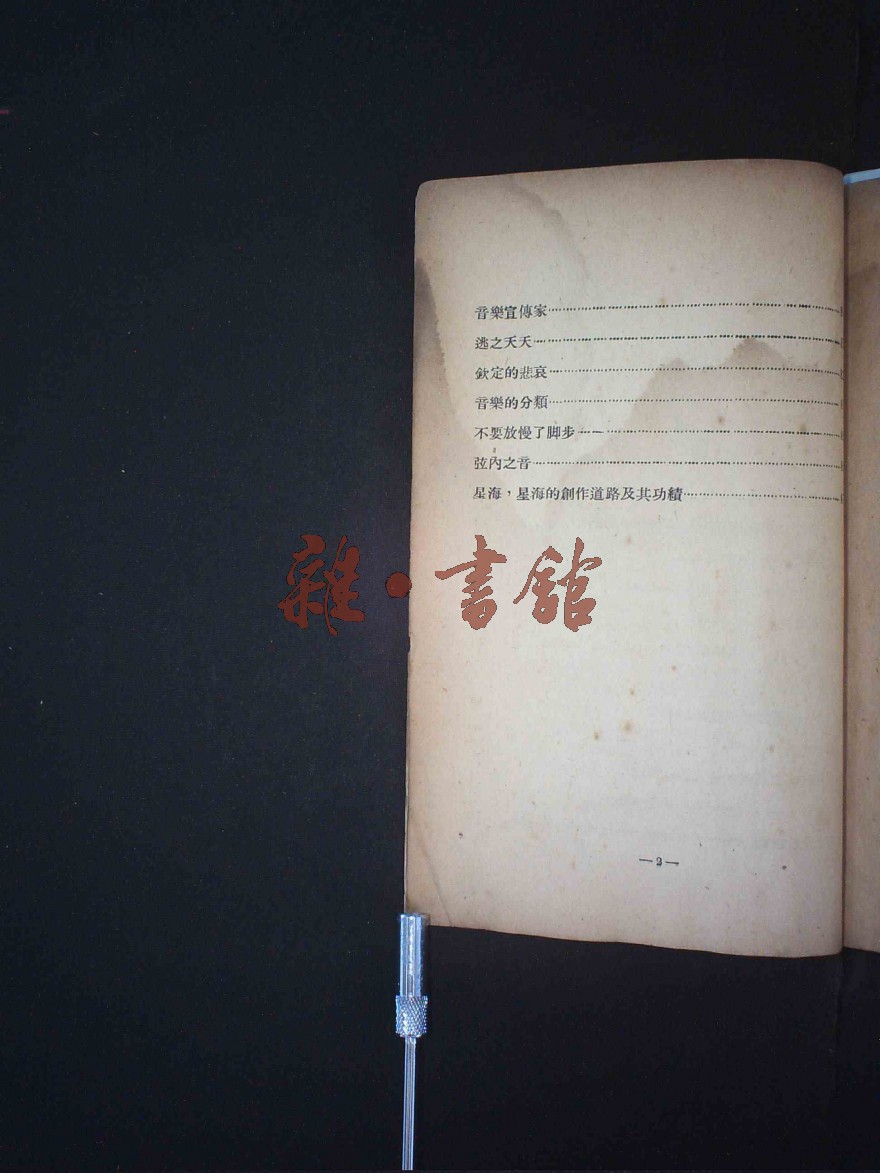 音樂宣傳家
逃之夭夭
欽定的悲哀
音樂的分類
不要放慢了脚步
弦內之音
星海，星海的創作道路及其功績
雜·書館
—2—